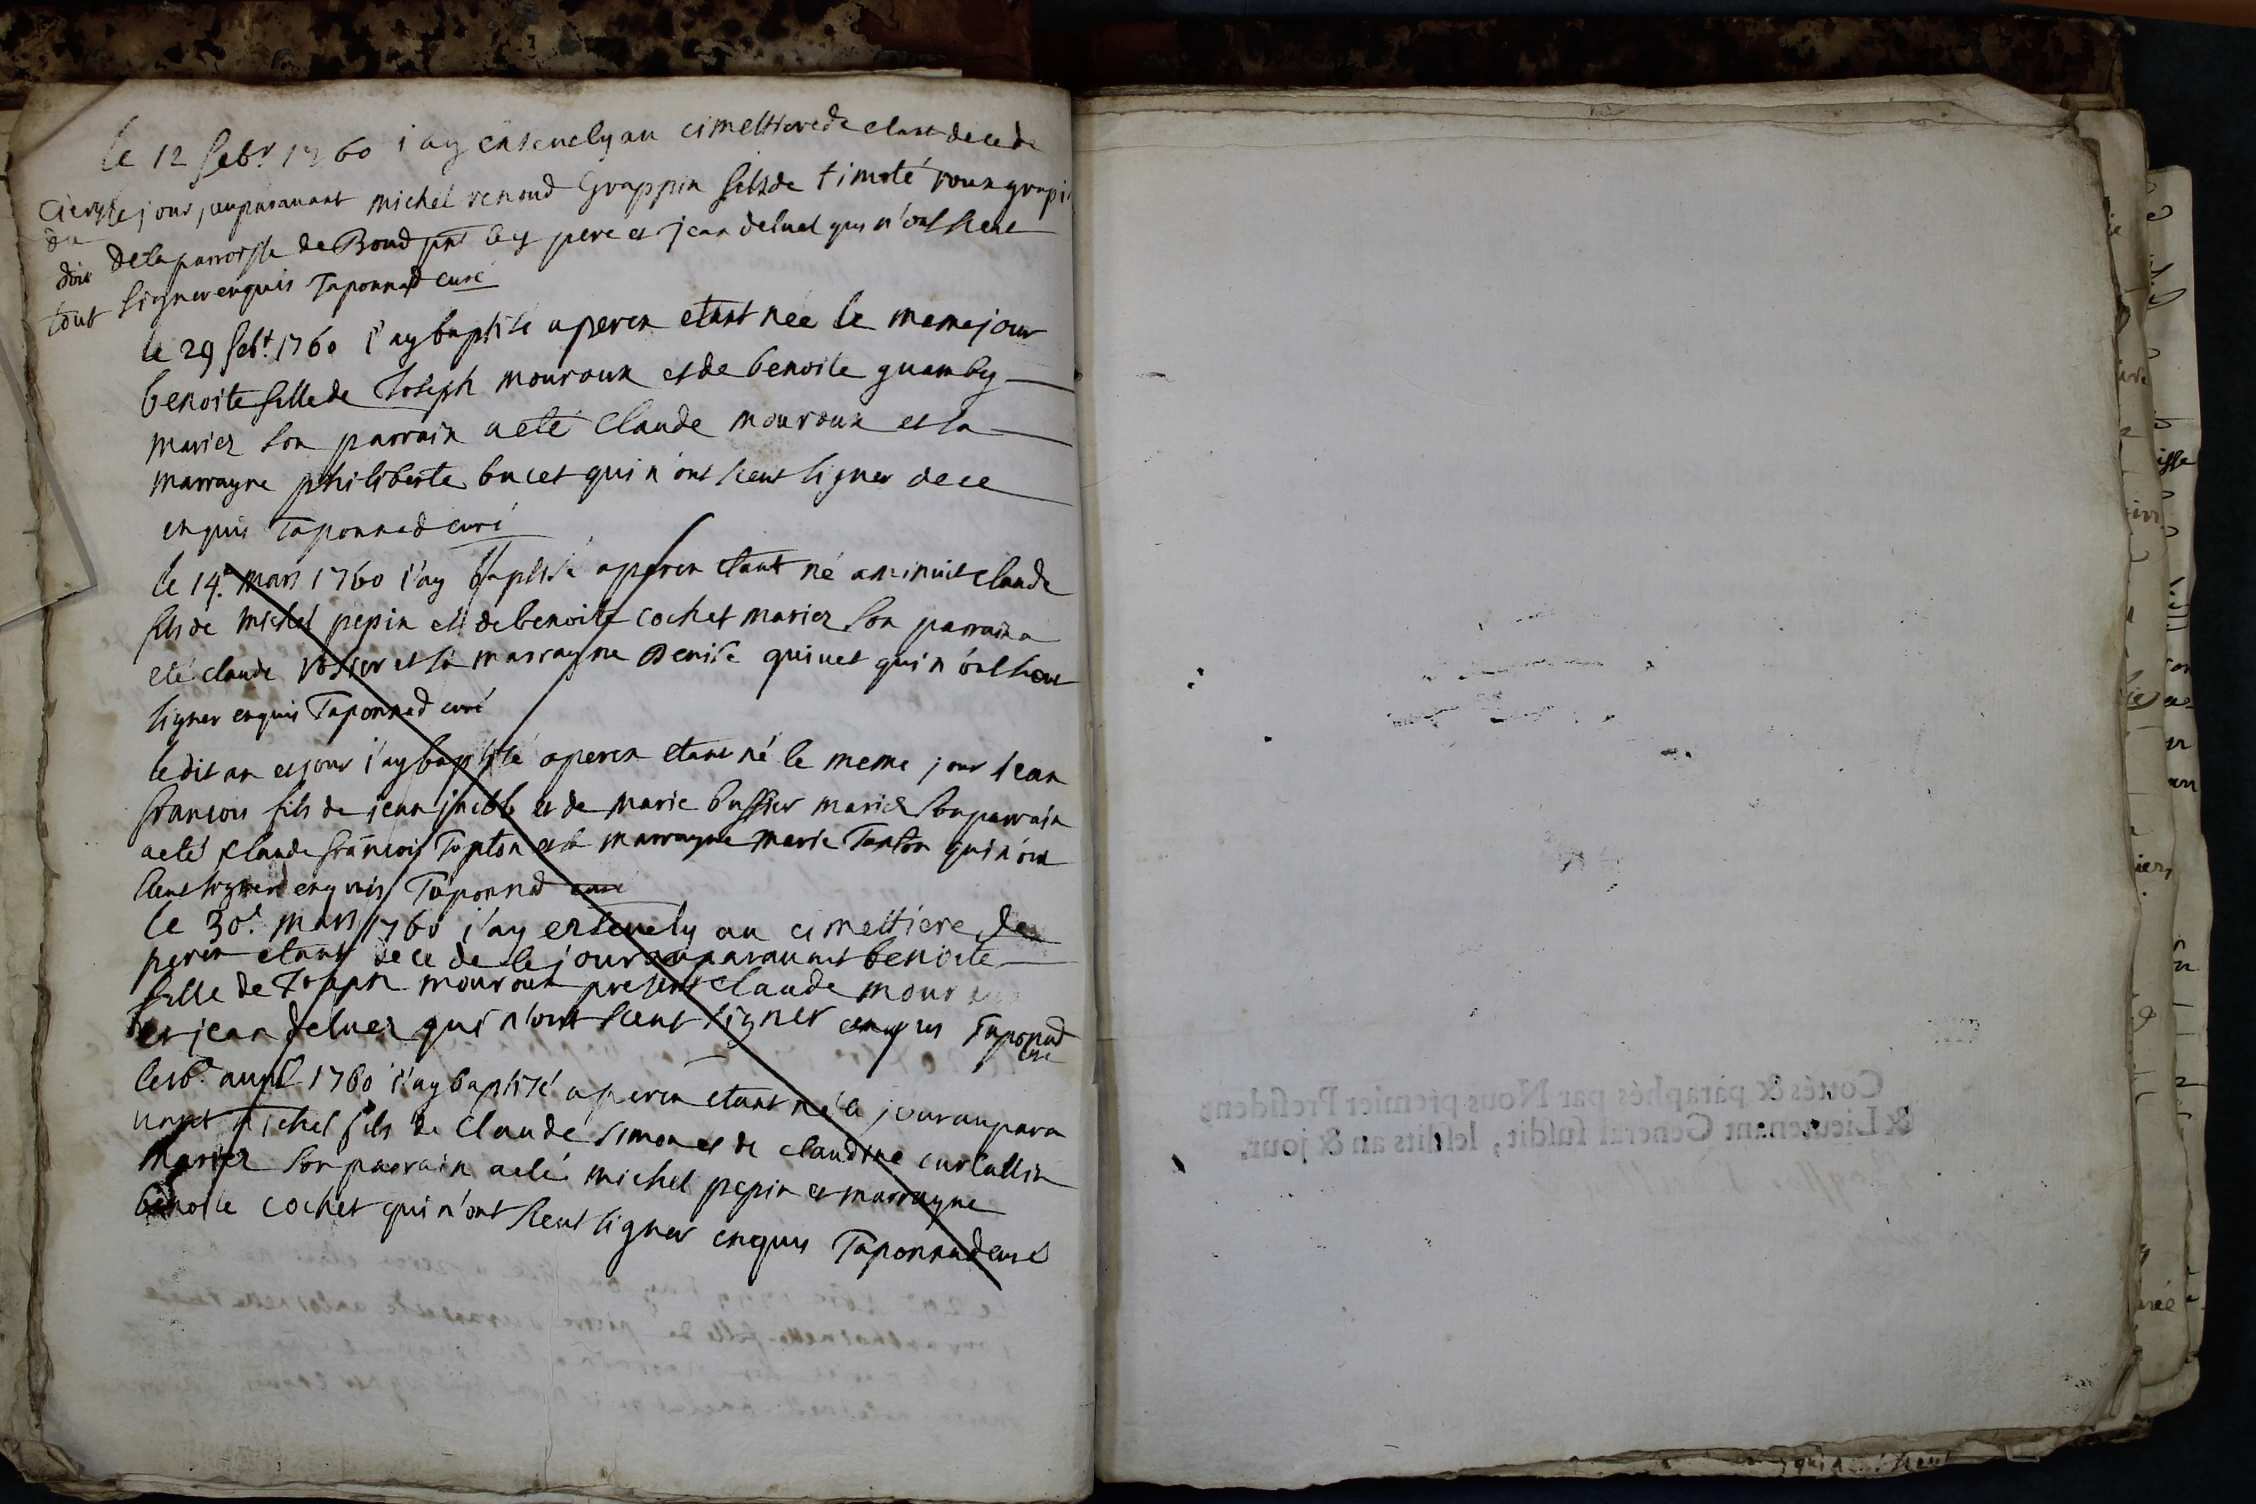 le 12 febr 1760 i'ay ensevely au cimettiere de etant decede
le jour auparavant michel renoud Grappin fils de timoté roux grapi
de la parroisse de Boud pnt le pere et jean deluet qui n'ont sceut
signer enquis Taponnad curé
du
doit
tout
le 29 febr. 1760 i'ay baptisé a peren etant née le meme jour
benoite fille de Joseph mouroux et de benoite guamby
mariez son parrain a eté Claude mouroux et la
marrayne philiberte bucet qui n'ont sceut signer de ce
enquis Taponnad curé
le 14.e mars 1760 i'ay baptisé a peren etant né a minuit claude
fils de michel pepin et de benoite cochet mariez son parrain a
eté claude rosier et la marrayne Denise quivet qui n'ont sceut
signer enquis Taponnad curé
ledit an et jour i'ay baptisé a peren etant né le meme jour jean
francois fils de jean et de marie bussier mariez son parrain
a eté claude francois Tonton et la marrayne marie Tonton qui n'ont
sceut signer enquis Taponnad curé
le 30.e mars 1760 i'ay ensevely au cimettiere de
peren etant decede le jour auparavant benoite
fille de Joseph mouroux present claude mouroux
et jean deluez qui n'ont sceut signer enquis Taponnad
curé
le avril 1760 i'ay baptisé a peren etant né le jour aupara
vant michel fils de Claude simon et de claudine curtallin
mariez son parrain a eté michel pepin et marrayne
benoite cochet qui n'ont sceut signer enquis Taponnad curé
Cottés & paraphés par Nous premier President
& Lieutenant General susdit, lesdits an & jour.